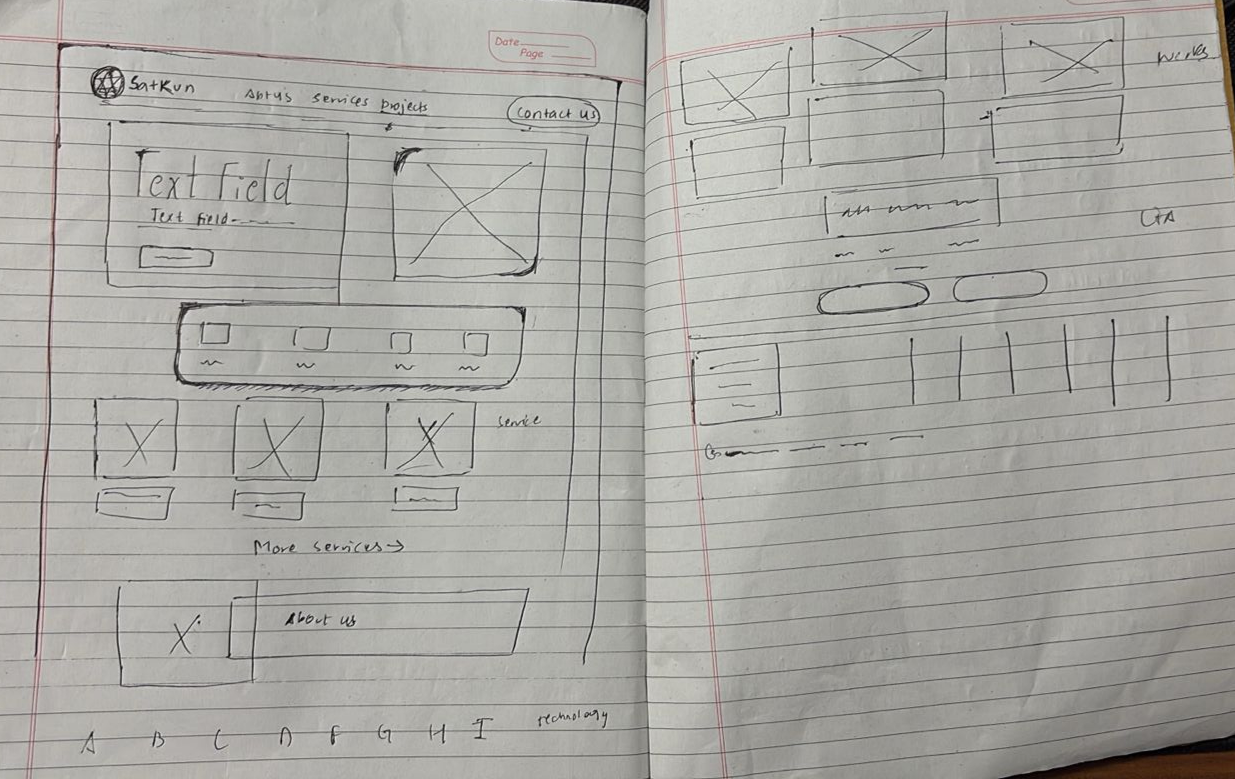 Date
Page
SatKun
Abtus services projects
Contact us
Text Field
Text field
service
More services →
About us
A B C D F G H I
technology
Works
CTA